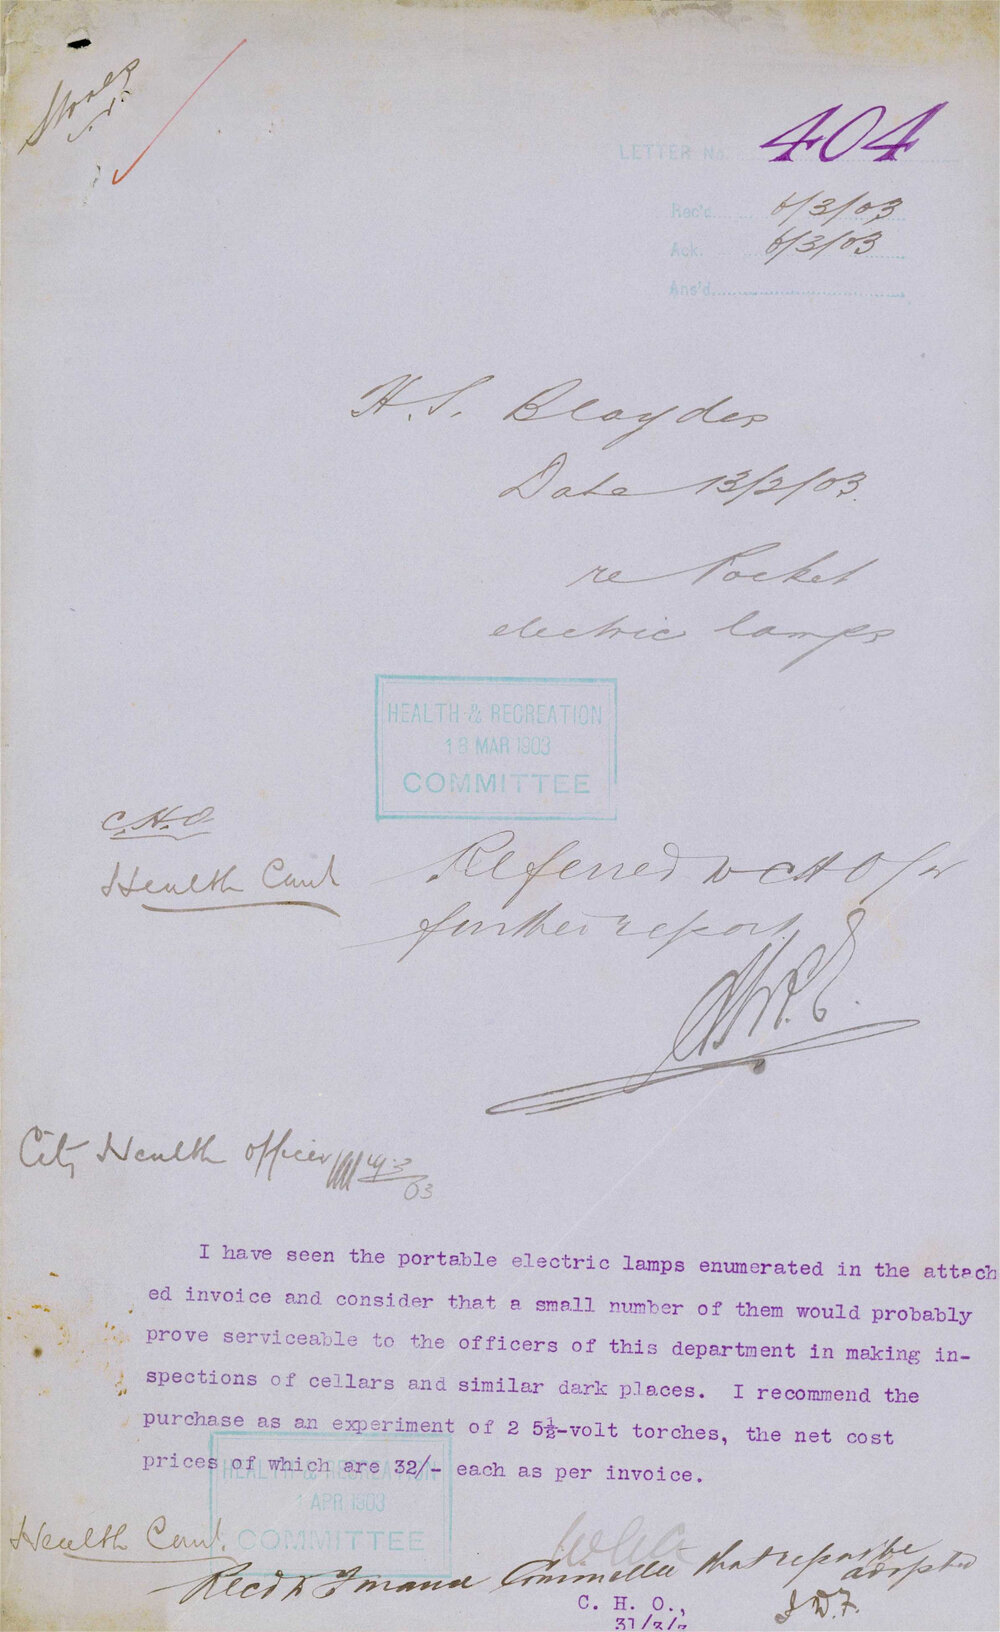 Stores
LETTER No. 404
Rec'd. 6/3/03
Ack. 6/3/03
Ans'd.
H. S. Blaydes
Date 13/2/03.
re Pocket
electric lamps
HEALTH & RECREATION
18 MAR 1903
COMMITTEE
C.H.O.
Health Comt
Referred to CHO for
further report
City Health officer
03
I have seen the portable electric lamps enumerated in the attach
ed invoice and consider that a small number of them would probably
prove serviceable to the officers of this department in making in-
spections of cellars and similar dark places. I recommend the
purchase as an experiment of 2 5½-volt torches, the net cost
prices of which are 32/- each as per invoice.
HEALTH & RECREATION
1 APR 1903
COMMITTEE
Health Comt.
Recd to Finance Committee that report be
adopted
C. H. O.,
31/3/3